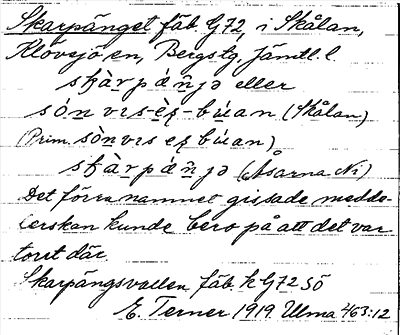 Skarpänget fäb. G72, i Skålan,
Klövsjö en, Bergstg, Jämtl. l.
skàrpáṉ̃jə eller
són vɩs-èʂ-búan (Skålan)
(Prim. sònvɩs eʂ búan)
skàrpáṉ̃jə (Åsarna Ni)
Det förra namnet gissade medde-
lerskan kunde bero på att det var
torrt där.
Skarpängsvallen fäb. k G72 SÖ
E. Terner 1919 Ulma 463:12